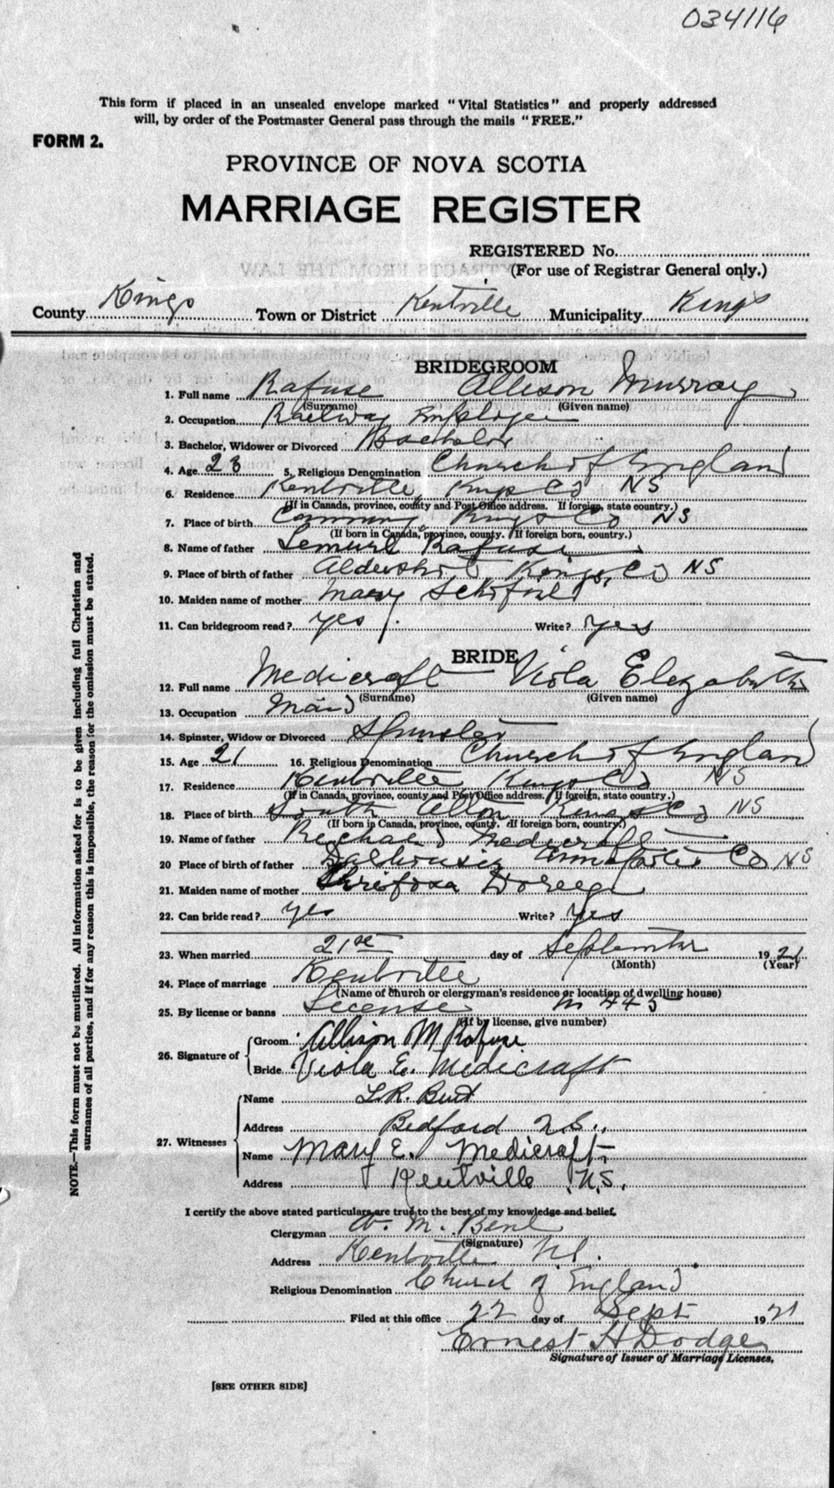 034116
This form if placed in an unsealed envelope marked "Vital Statistics" and properly addressed
will, by order of the Postmaster General pass through the mails "FREE."
FORM 2.
PROVINCE OF NOVA SCOTIA
MARRIAGE REGISTER
REGISTERED No.
(For use of Registrar General only.)
County Kings Town or District Kentville Municipality Kings
BRIDEGROOM
1. Full name Rafuse Allison Murray
(Surname) (Given name)
2. Occupation Railway Employee
3. Bachelor, Widower or Divorced Bachelor
4. Age 23 5. Religious Denomination Church of England
6. Residence Kentville, Kings Co NS
(If in Canada, province, county and Post Office address. If foreign, state country.)
7. Place of birth Kings Co NS
(If born in Canada, province, county. If foreign born, country.)
8. Name of father Rafuse
9. Place of birth of father Aldershot Kings Co NS
10. Maiden name of mother Mary
11. Can bridegroom read? yes Write? yes
BRIDE
12. Full name Medicraft Viola Elizabeth
(Surname) (Given name)
13. Occupation Maid
14. Spinster, Widow or Divorced Spinster
15. Age 21 16. Religious Denomination Church of England
17. Residence Kentville Kings Co NS
(If in Canada, province, county and Post Office address. If foreign, state country.)
18. Place of birth South Kings Co NS
(If born in Canada, province, county. If foreign born, country.)
19. Name of father Richard Medicraft
20 Place of birth of father Dalhousie Annapolis Co NS
21. Maiden name of mother
22. Can bride read? yes Write? yes
23. When married 21st day of September 1921
(Month) (Year)
24. Place of marriage Kentville
(Name of church or clergyman's residence or location of dwelling house)
25. By license or banns License M 443
(If by license, give number)
26. Signature of Groom Allison M Rafuse
Bride Viola E. Medicraft
27. Witnesses Name L.R.
Address Bedford N.S.
Name Mary E. Medicraft
Address Kentville N.S.
I certify the above stated particulars are true to the best of my knowledge and belief.
Clergyman M.
(Signature)
Address Kentville NS.
Religious Denomination Church of England
Filed at this office 22 day of Sept 1921
Ernest H Dodge
Signature of Issuer of Marriage Licenses.
[SEE OTHER SIDE]
NOTE.—This form must not be mutilated. All information asked for is to be given including full Christian and
surnames of all parties, and if for any reason this is impossible, the reason for the omission must be stated.